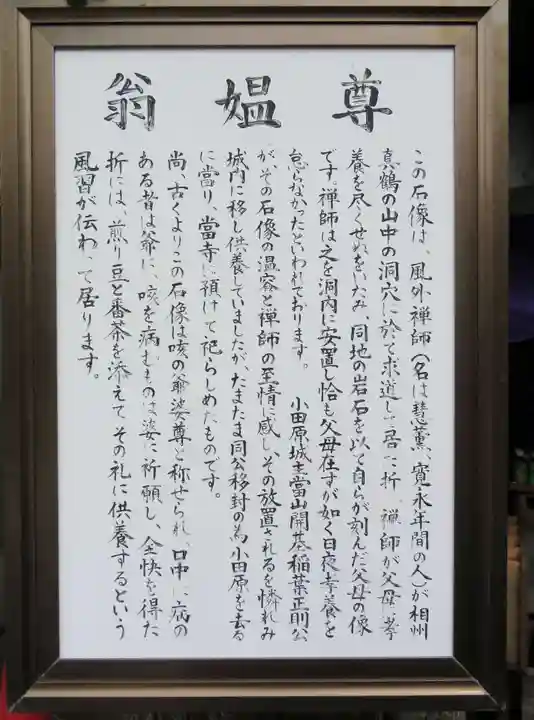 翁媼尊
この石像は、風外禅師(名は慧薫、寛永年間の人)が相州
真鶴の山中の洞穴に於て求道して居た折、禅師が父母に孝
養を尽くせぬをいたみ、同地の岩石を以て自らが刻んだ父母の像
です。禅師は之を洞内に安置し恰も父母在すが如く日夜孝養を
怠らなかったといわれております。 小田原城主當山開基稲葉正則公
が、その石像の温容と禅師の至情に感じ、その放置されるを憐れみ
城内に移し供養していましたが、たまたま同公移封の為小田原を去る
に當り、當寺に預けて祀らしめたものです。
尚、古くよりこの石像は咳の爺婆尊と称せられ、口中に病の
ある者は爺に、咳を病むものは婆に祈願し、全快を得た
折には、煎り豆と番茶を添えて、その礼に供養するという
風習が伝わって居ります。